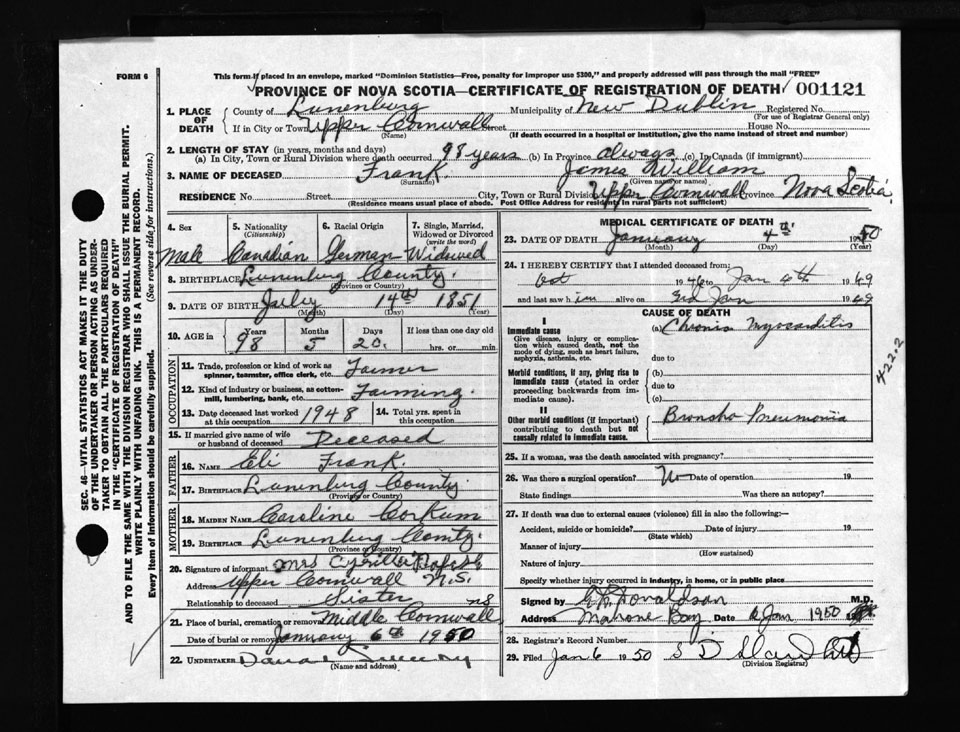 FORM 6
This form if placed in an envelope, marked "Dominion Statistics—Free, penalty for improper use $300," and properly addressed will pass through the mail "FREE"
PROVINCE OF NOVA SCOTIA—CERTIFICATE OF REGISTRATION OF DEATH 001121
1. PLACE OF DEATH
County of Lunenburg Municipality of New Dublin Registered No.
(For use of Registrar General only)
If in City or Town Upper Cornwall Street House No.
(Name) (If death occurred in a hospital or institution, give the name instead of street and number)
2. LENGTH OF STAY (in years, months and days)
(a) In City, Town or Rural Division where death occurred 98 years (b) In Province always (c) In Canada (if immigrant)
3. NAME OF DECEASED Frank James William
(Surname) (Given name or names)
RESIDENCE No. Street City, Town or Rural Division Upper Cornwall Province Nova Scotia
(Residence means usual place of abode. Post Office Address for residents in rural parts not sufficient)
4. Sex 5. Nationality (Citizenship) 6. Racial Origin 7. Single, Married, Widowed or Divorced (write the word)
Male Canadian German Widowed
8. BIRTHPLACE Lunenburg County
(Province or Country)
9. DATE OF BIRTH July 14th 1851
(Month) (Day) (Year)
10. AGE in Years Months Days If less than one day old
98 5 20. hrs. or min.
OCCUPATION
11. Trade, profession or kind of work as spinner, teamster, office clerk, etc. Farmer
12. Kind of industry or business, as cotton-mill, lumbering, bank, etc. Farming
13. Date deceased last worked at this occupation 1948 14. Total yrs. spent in this occupation
15. If married give name of wife or husband of deceased Deceased
FATHER
16. NAME Eli Frank.
17. BIRTHPLACE Lunenburg County
(Province or Country)
MOTHER
18. MAIDEN NAME Caroline Corkum
19. BIRTHPLACE Lunenburg County.
(Province or Country)
20. Signature of informant Mrs
Address Upper Cornwall N.S.
Relationship to deceased Sister
21. Place of burial, cremation or removal Middle Cornwall NS
Date of burial or removal January 6th 1950
22. UNDERTAKER
(Name and address)
MEDICAL CERTIFICATE OF DEATH
23. DATE OF DEATH January 4th 1950
(Month) (Day) (Year)
24. I HEREBY CERTIFY that I attended deceased from:
Oct 1946 to Jan 4th 1949
and last saw him alive on 3rd Jan 1949
CAUSE OF DEATH
I
Immediate cause (a) Chronic Myocarditis
Give disease, injury or complication which caused death, not the mode of dying, such as heart failure, asphyxia, asthenia, etc.
due to
Morbid conditions, if any, giving rise to immediate cause (stated in order proceeding backwards from immediate cause).
(b)
due to
(c)
II
Other morbid conditions (if important) contributing to death but not causally related to immediate cause.
Broncho Pneumonia
422.2
25. If a woman, was the death associated with pregnancy?
26. Was there a surgical operation? No Date of operation 19
State findings Was there an autopsy?
27. If death was due to external causes (violence) fill in also the following:—
Accident, suicide or homicide? Date of injury 19
(State which)
Manner of injury
(How sustained)
Nature of injury
Specify whether injury occurred in industry, in home, or in public place
Signed by Donaldson M.D.
Address Mahone Bay Date 6 Jan 1950
28. Registrar's Record Number
29. Filed Jan 6 1950 S D
(Division Registrar)
SEC. 46—VITAL STATISTICS ACT MAKES IT THE DUTY
OF THE UNDERTAKER OR PERSON ACTING AS UNDER-
TAKER TO OBTAIN ALL THE PARTICULARS REQUIRED
IN THE "CERTIFICATE OF REGISTRATION OF DEATH"
AND TO FILE THE SAME WITH THE DIVISION REGISTRAR WHO SHALL ISSUE THE BURIAL PERMIT.
WRITE PLAINLY WITH UNFADING INK. THIS IS A PERMANENT RECORD.
Every item of Information should be carefully supplied. (See reverse side for instructions.)